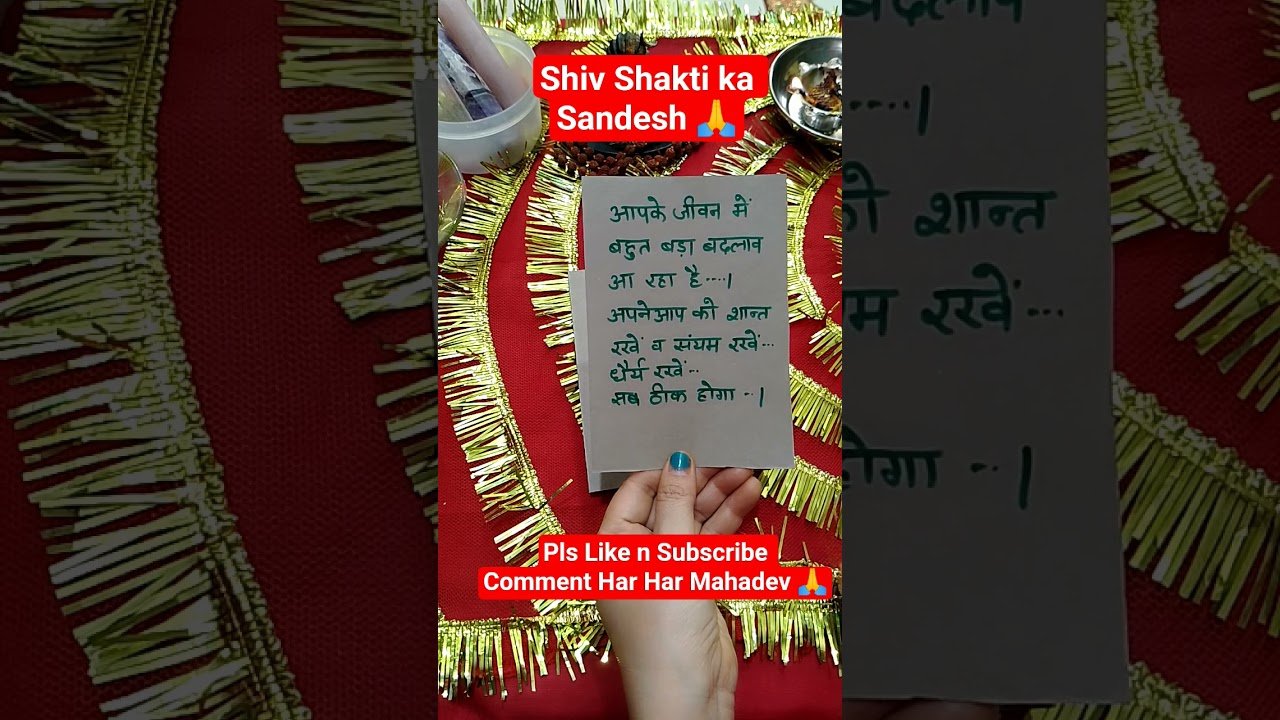 Shiv Shakti ka
Sandesh 🙏
आपके जीवन में
बहुत बड़ा बदलाव
आ रहा है....।
अपनेआप को शान्त
रखें व संयम रखें...
धैर्य रखें..
सब ठीक होगा ..।
Pls Like n Subscribe
Comment Har Har Mahadev 🙏
बदलाव
....।
को शान्त
रखें...
होगा ..।